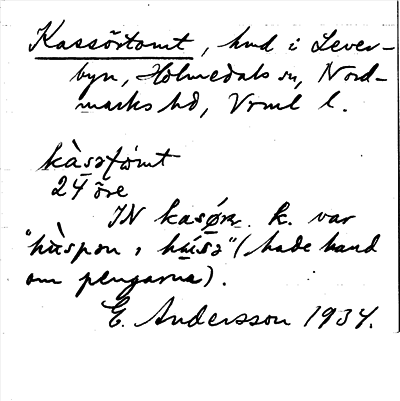 Kassörtomt, hmd i Lever-
byn, Holmedals sn, Nord-
marks hd, Vrml l.
24 öre
IN kasør k. var
"hùspon i húsə" (hade hand
om pengarna).
E. Andersson 1934.